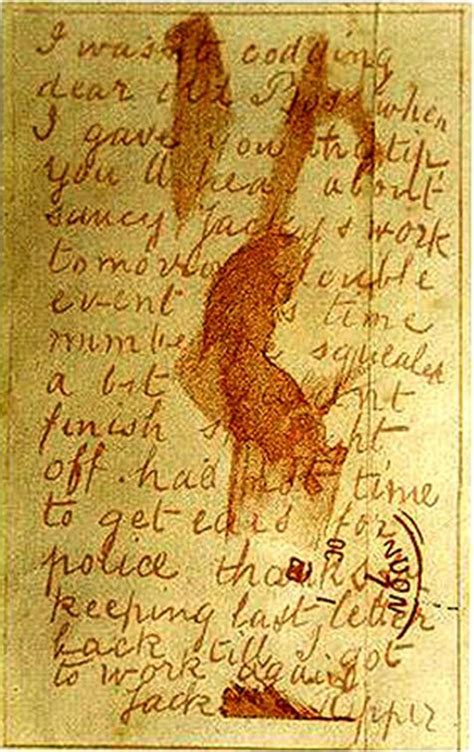 I wasnt codding
dear old Boss when
I gave you the tip
youll hear about
saucy Jackys work
tomorrow double
event time
squealed
a bit couldnt
finish
off. had not time
to get ears for
police thanks for
keeping last letter
back till I got
to work again
Jack Ripper